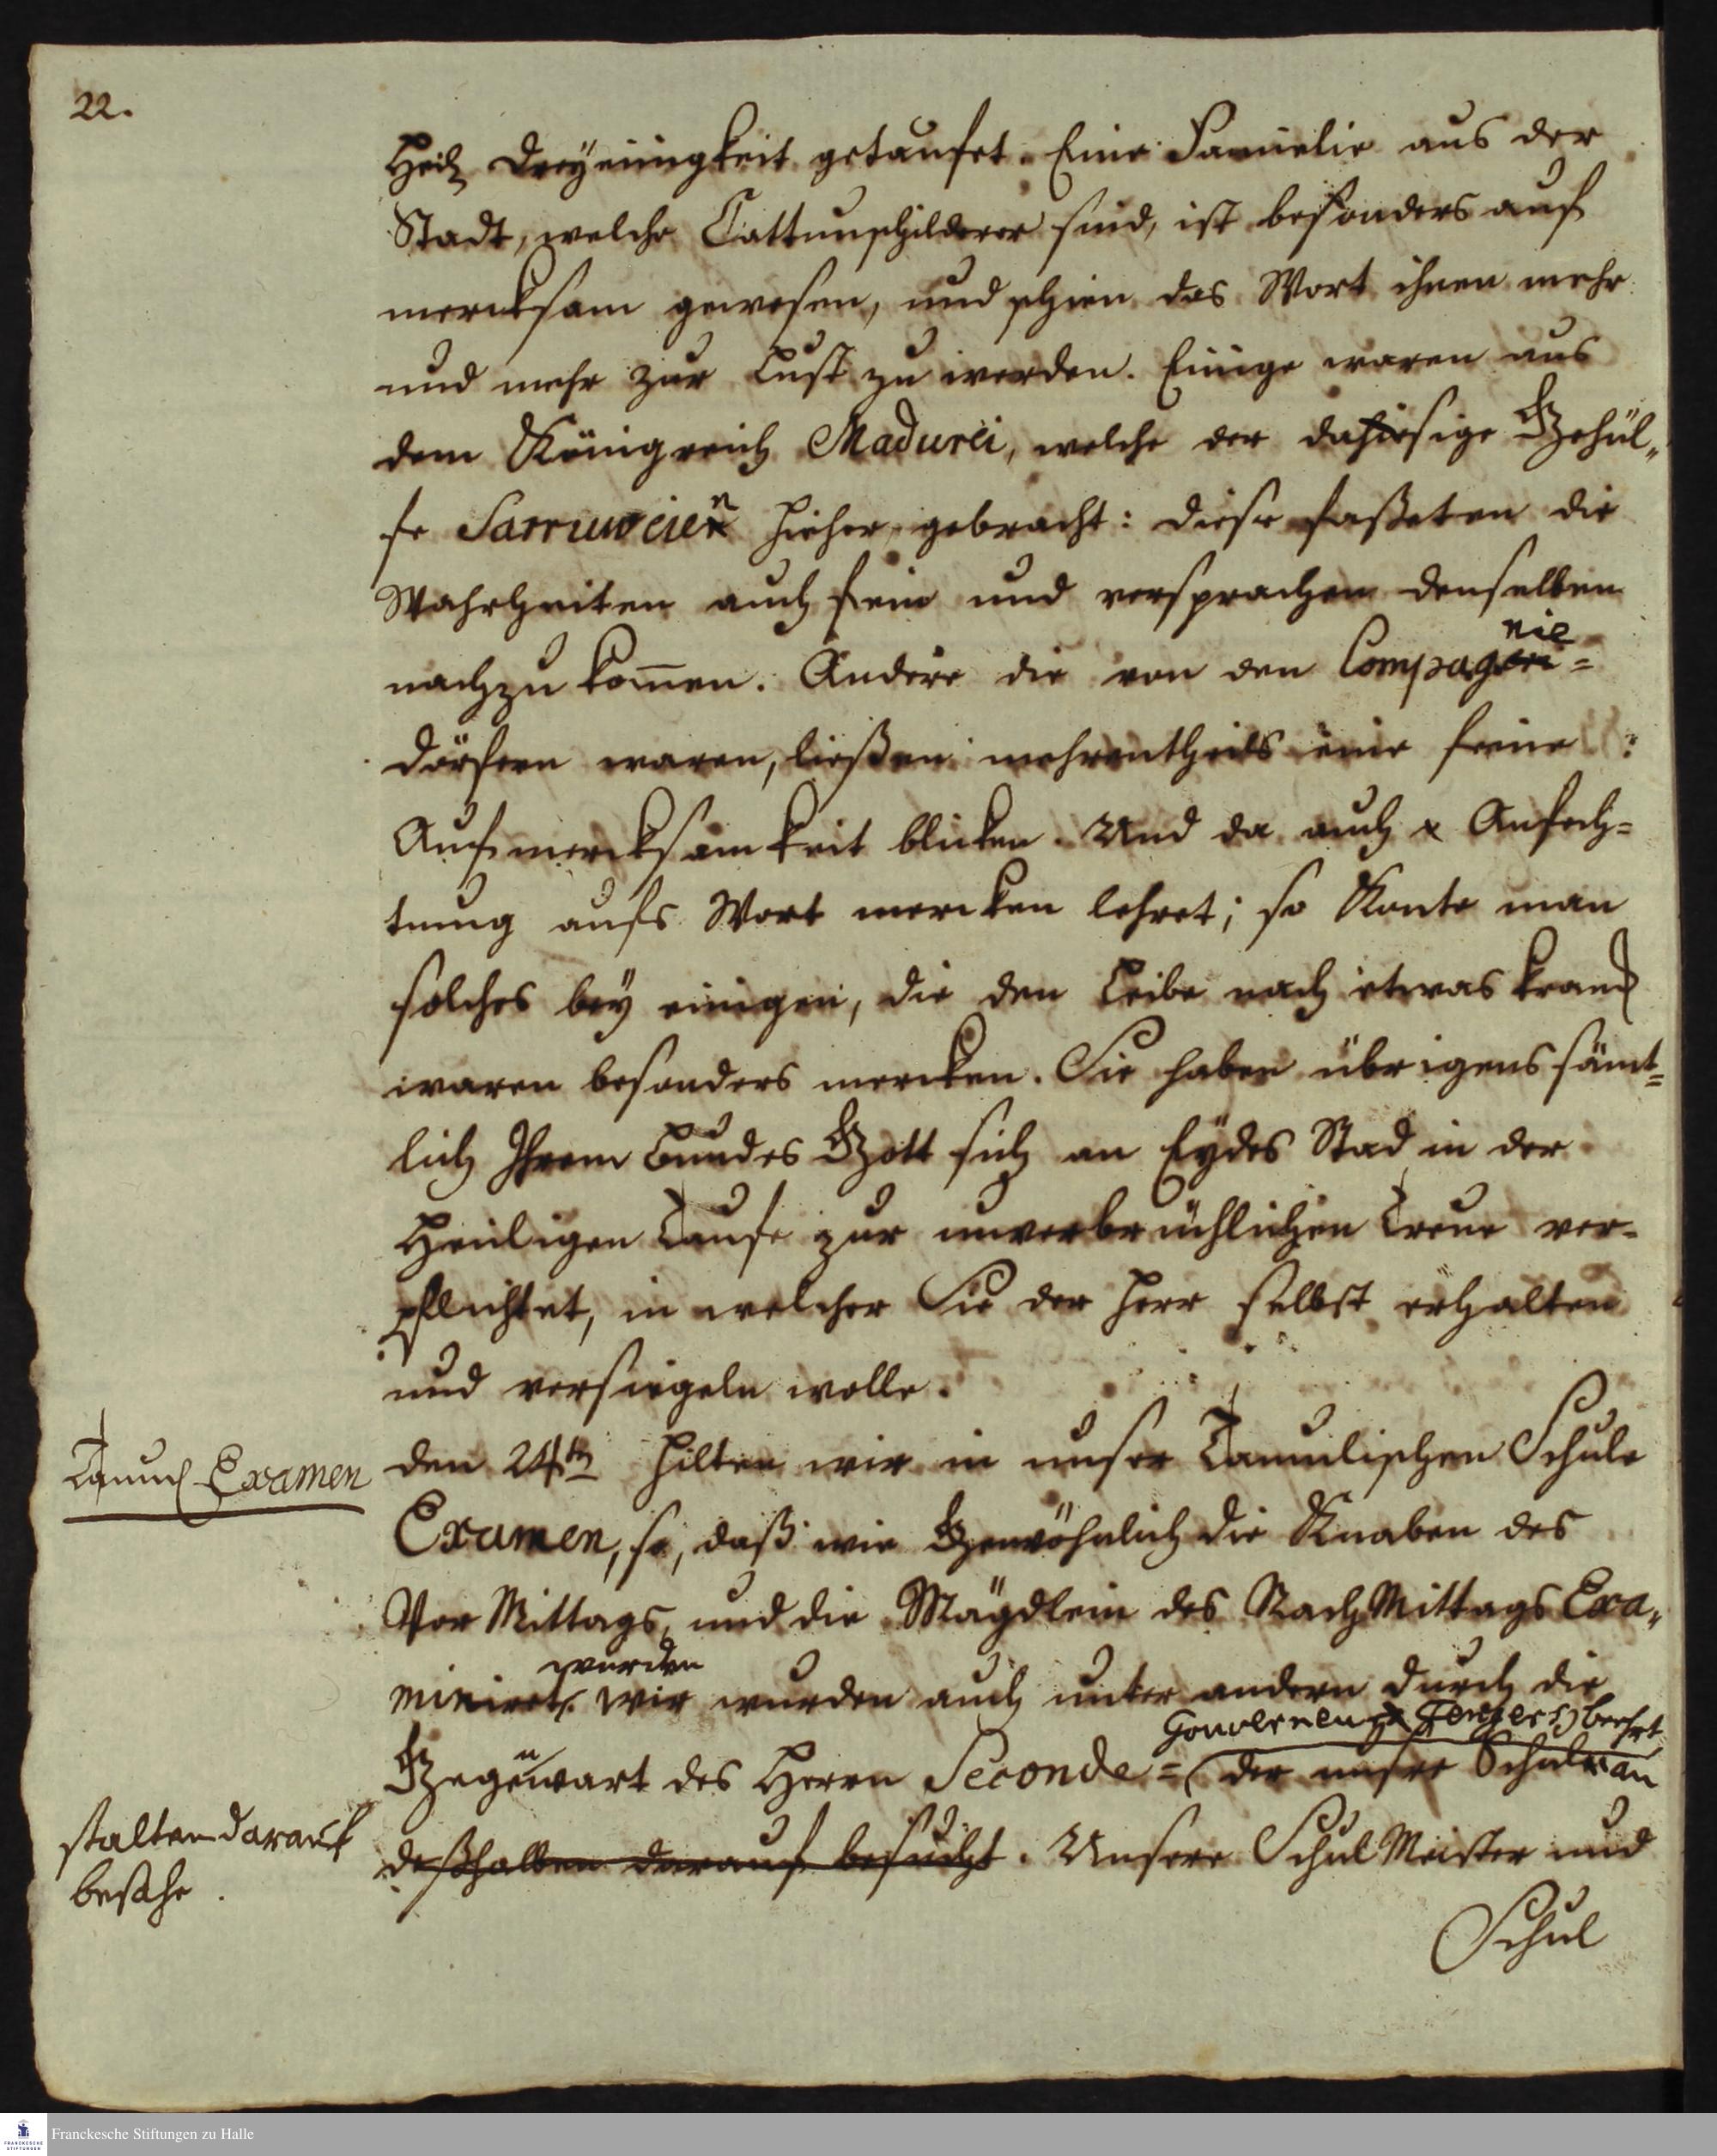 22.
Heil. Dreyeinigkeit getaufet. Eine Famielie aus der
Stadt, welche Cattunschilderer sind, ist besonders auf
mercksam gewesen, und schien das Wort ihnen mehr
und mehr zur Lust zu werden. Einige waren aus
dem Königreich Madurei, welche der dasige Gehül„
fe Sarruweien hieher gebracht: diese fasseten die
Wahrheiten auch fein und versprachen denselben
nachzukom̅en. Andere die von den Compagnie=
dörfern waren, ließen mehrentheils eine feine
Aufmercksamkeit blicken. Und da auch Anfech=
tung aufs Wort mercken lehret; so Konte man
solches bey einigen, die den Leibe nach etwas kranck
waren besonders mercken. Sie haben übrigens sämt=
lich Ihrem Bundes Gott sich an Eydes Stad in der
Heiligen Taufe zur unverbrüchlichen Treue ver=
pflichtet, in welcher Sie der Herr selbst erhalten
und versiegeln wolle.
Tamul Examen
den 24ten hilten wir in unser Tamulischen Schule
Examen, so, daß wie Gewöhnlich die Knaben des
Vor Mittags, und die Mägdlein des Nach Mittags Exa„
miniret wurden. Wir wurden auch unter andern durch die
Gegenwart des Herrn Seconde = Gouverneur beehrt
(der unsre Schul an
stalten darauf
besahe.
deßhalben darauf besucht. Unsere Schul Meister und
Schul
Franckesche Stiftungen zu Halle